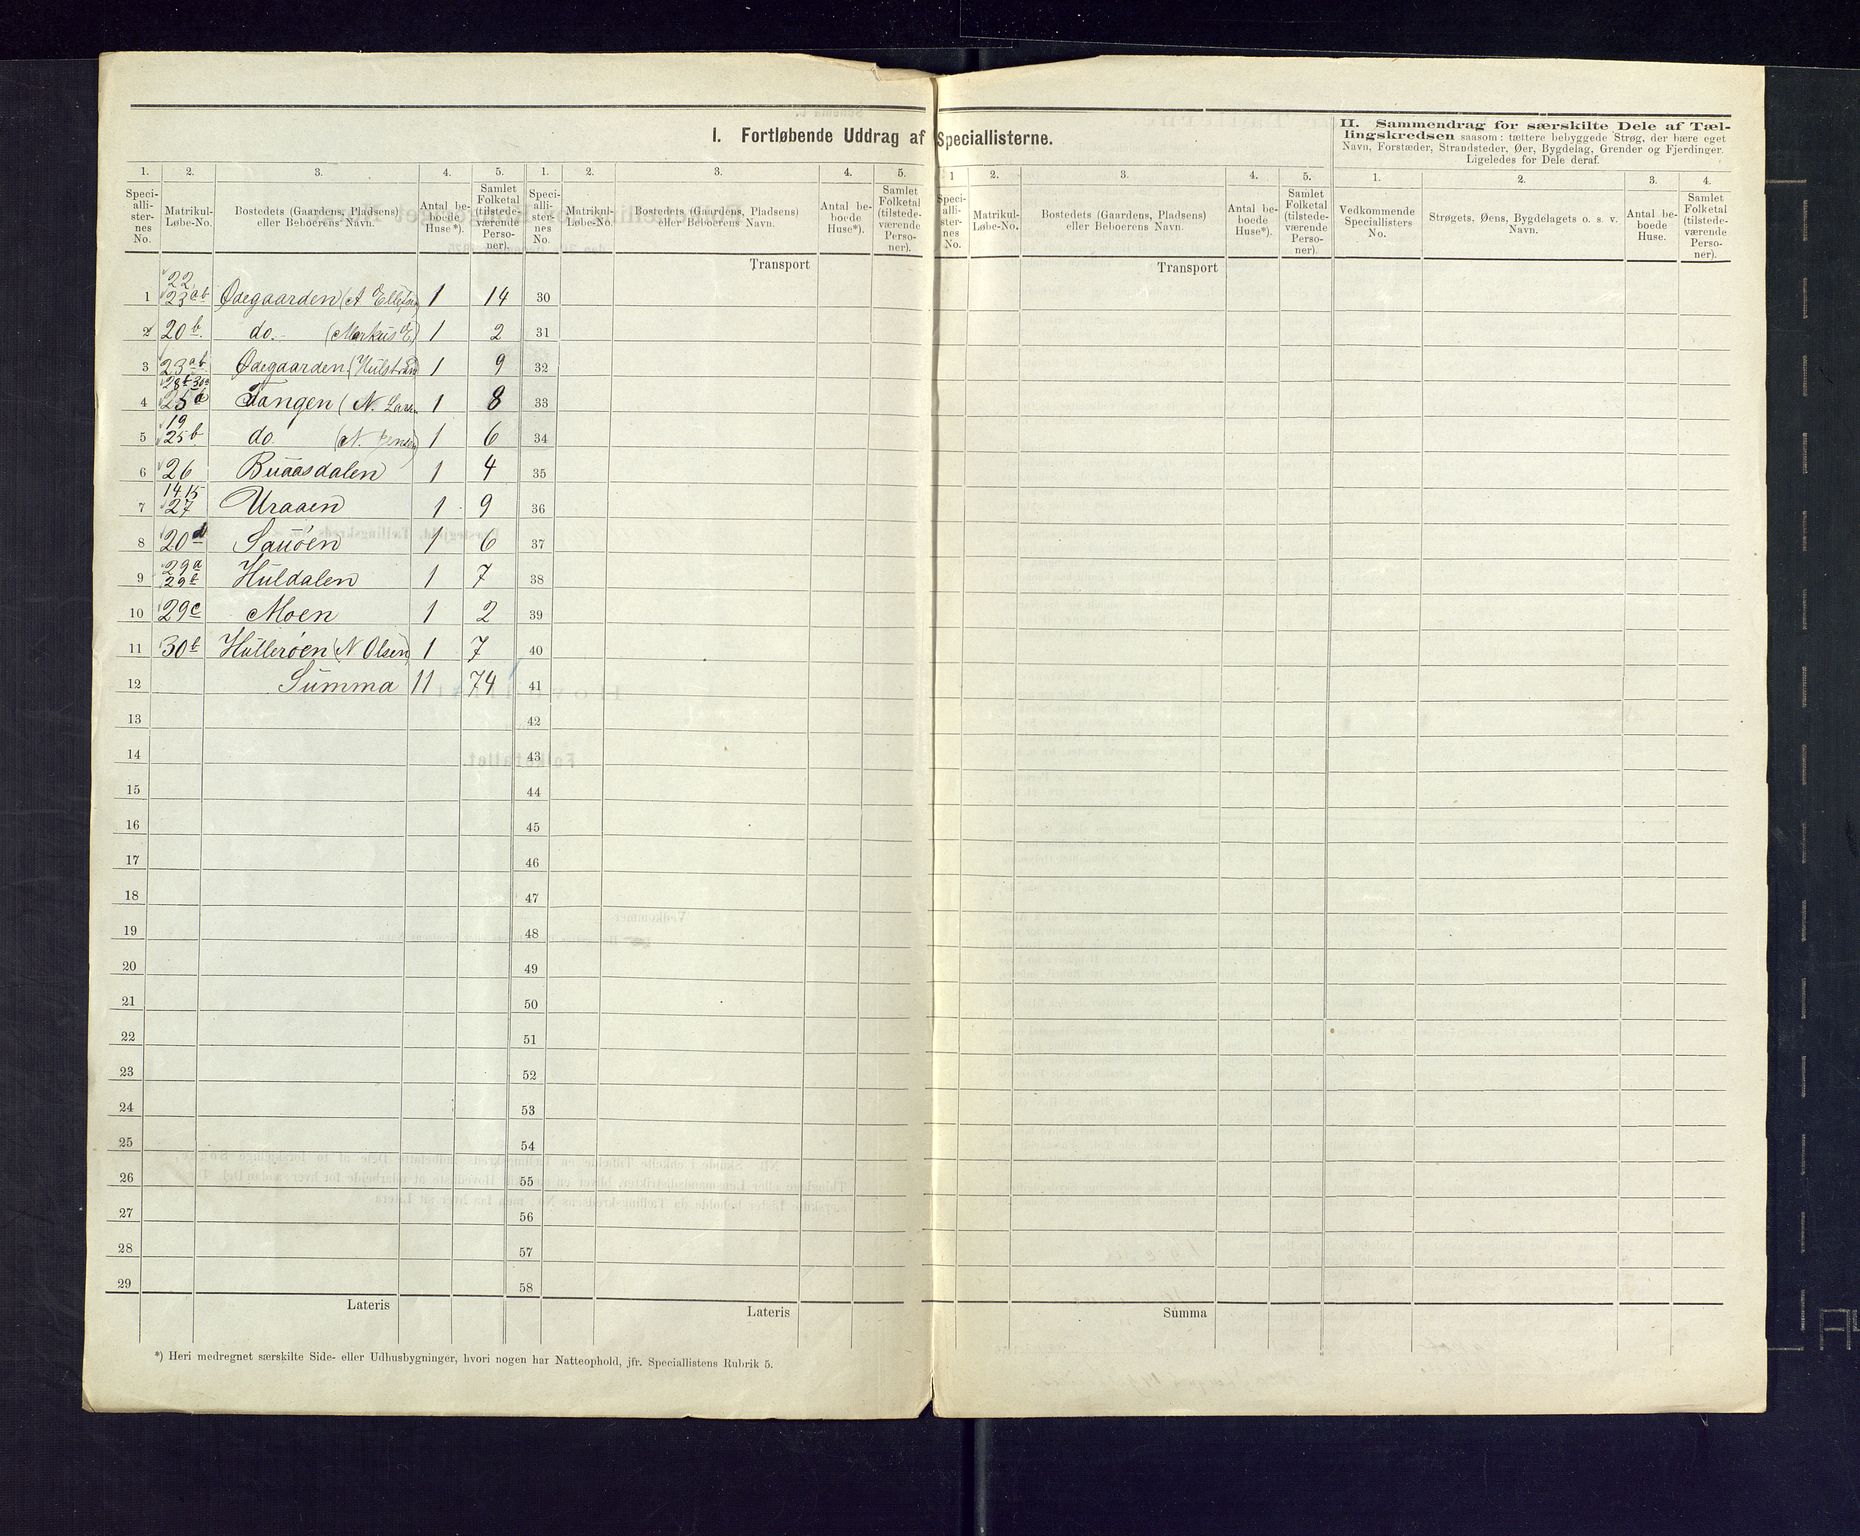 I. Fortløbende Uddrag af Speciallisterne.
II. Sammendrag for særskilte Dele af Tæl-
lingskredsen saasom: tættere bebyggede Strøg, der bære eget
Navn, Forstæder, Strandsteder, Øer, Bygdelag, Grender og Fjerdinger.
Ligeledes for Dele deraf.
1. 2. 3. 4. 5. 1. 2. 3. 4. 5. 1 2. 3. 4. 5. 1. 2. 3. 4.
Speci-
alli-
ster-
nes
No.
Matrikul-
Løbe-No.
Bostedets (Gaardens, Pladsens)
eller Beboerens Navn.
Antal be-
boede
Huse*).
Samlet
Folketal
(tilstede-
værende
Perso-
ner).
Speci-
alli-
ster-
nes
No.
Matrikul-
Løbe-No.
Bostedets (Gaardens, Pladsens)
eller Beboerens Navn.
Antal be-
boede
Huse*).
Samlet
Folketal
(tilstede-
værende
Perso-
ner).
Speci-
alli-
ster-
nes
No.
Matrikul-
Løbe-No.
Bostedets (Gaardens, Pladsens)
eller Beboerens Navn.
Antal be-
boede
Huse*).
Samlet
Folketal
(tilstede-
værende
Perso-
ner).
Vedkommende
Speciallisters
No.
Strøgets, Øens, Bygdelagets o. s. v.
Navn.
Antal be-
boede
Huse.
Samlet
Folketal
(tilstede-
værende
Perso-
ner).
Transport
Transport
22
1 23ab Ødegaarden (A Ellefsen 1 14 30
2 20b do.- (Markus E.) 1 2 31
3 23ab Ødegaarden (Hulstrøm 1 9 32
28b 30a
4 25a Tangen (N. Larsen 1 8 33
19
5 25b do. (N. Jensen) 1 6 34
6 26 Buaasdalen 1 4 35
14 15
7 27 Uraaen 1 9 36
8 20d Sauøen 1 6 37
29a
9 29b Huldalen 1 7 38
10 29c Moen 1 2 39
11 30b Hullerøen (N Olsen) 1 7 40
12 Summa 11 74 41
13 42
14 43
15 44
16 45
17 46
18 47
19 48
20 49
21 50
22 51
23 52
24 53
25 54
26 55
27 56
28 57
29 58
Lateris
Lateris
Summa
*) Heri medregnet særskilte Side- eller Udhusbygninger, hvori nogen har Natteophold, jfr. Speciallistens Rubrik 5.